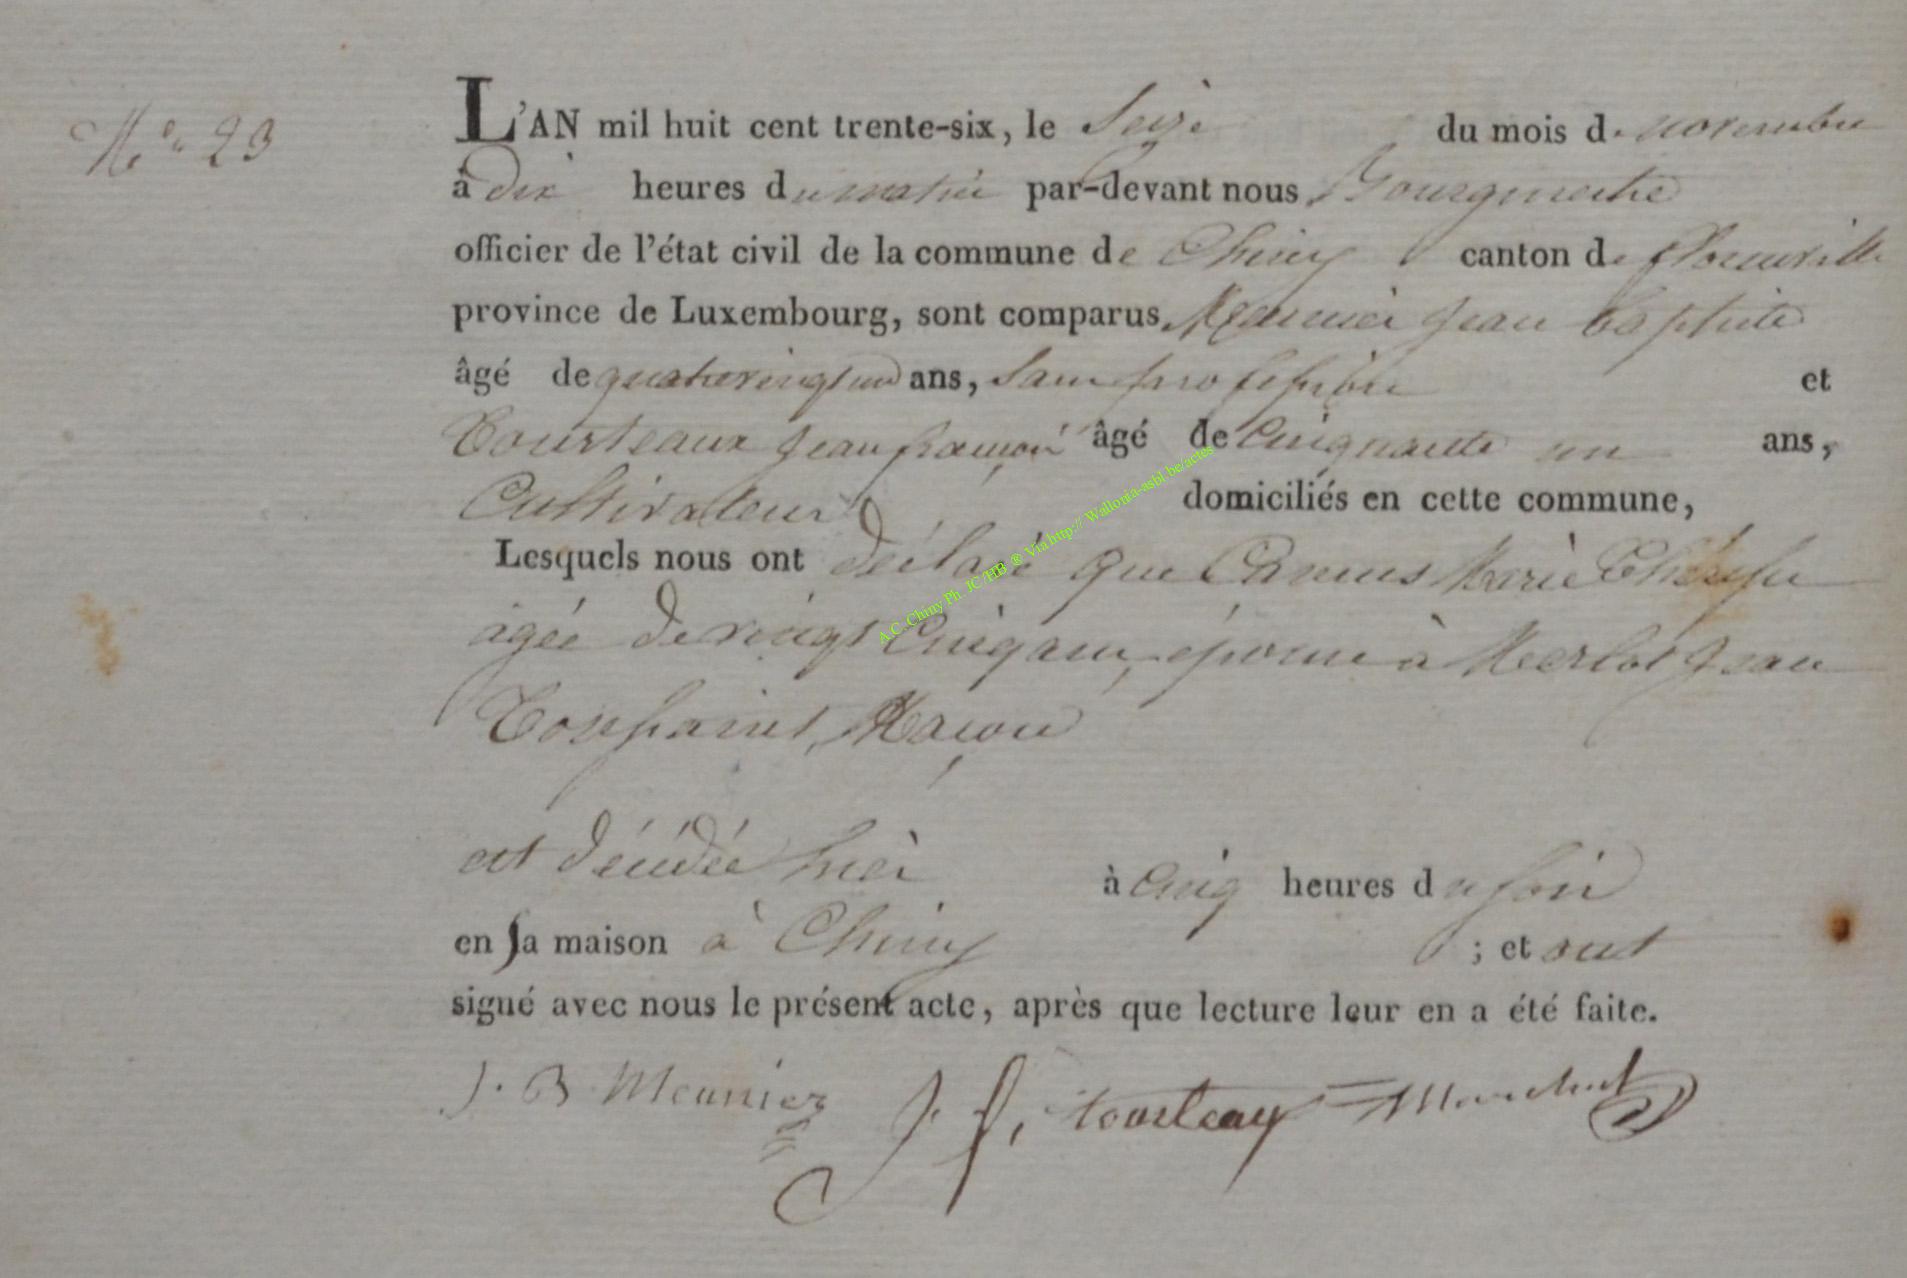 N° 23
L'AN mil huit cent trente-six, le Seize du mois de novembre
à dix heures du matin par-devant nous Bourgmestre
officier de l'état civil de la commune de Chiny canton de florenville
province de Luxembourg, sont comparus Meunier Jean baptiste
âgé de quatrevingt un ans, Sans profession et
Tourteaux Jean françois âgé de Cinquante un ans,
Cultivateur domiciliés en cette commune,
Lesquels nous ont déclaré que Camus Marie Thérèse
agée de vingt Cinq ans, épouse à Merlot Jean
Toussaint, Maçon
est décédée hier à Cinq heures du soir
en sa maison à Chiny ; et ont
signé avec nous le présent acte, après que lecture leur en a été faite.
J. B Meunier J. f. tourteaux
A.C. Chiny Ph. JC/HB ® Via http:// Wallonia-asbl.be/actes